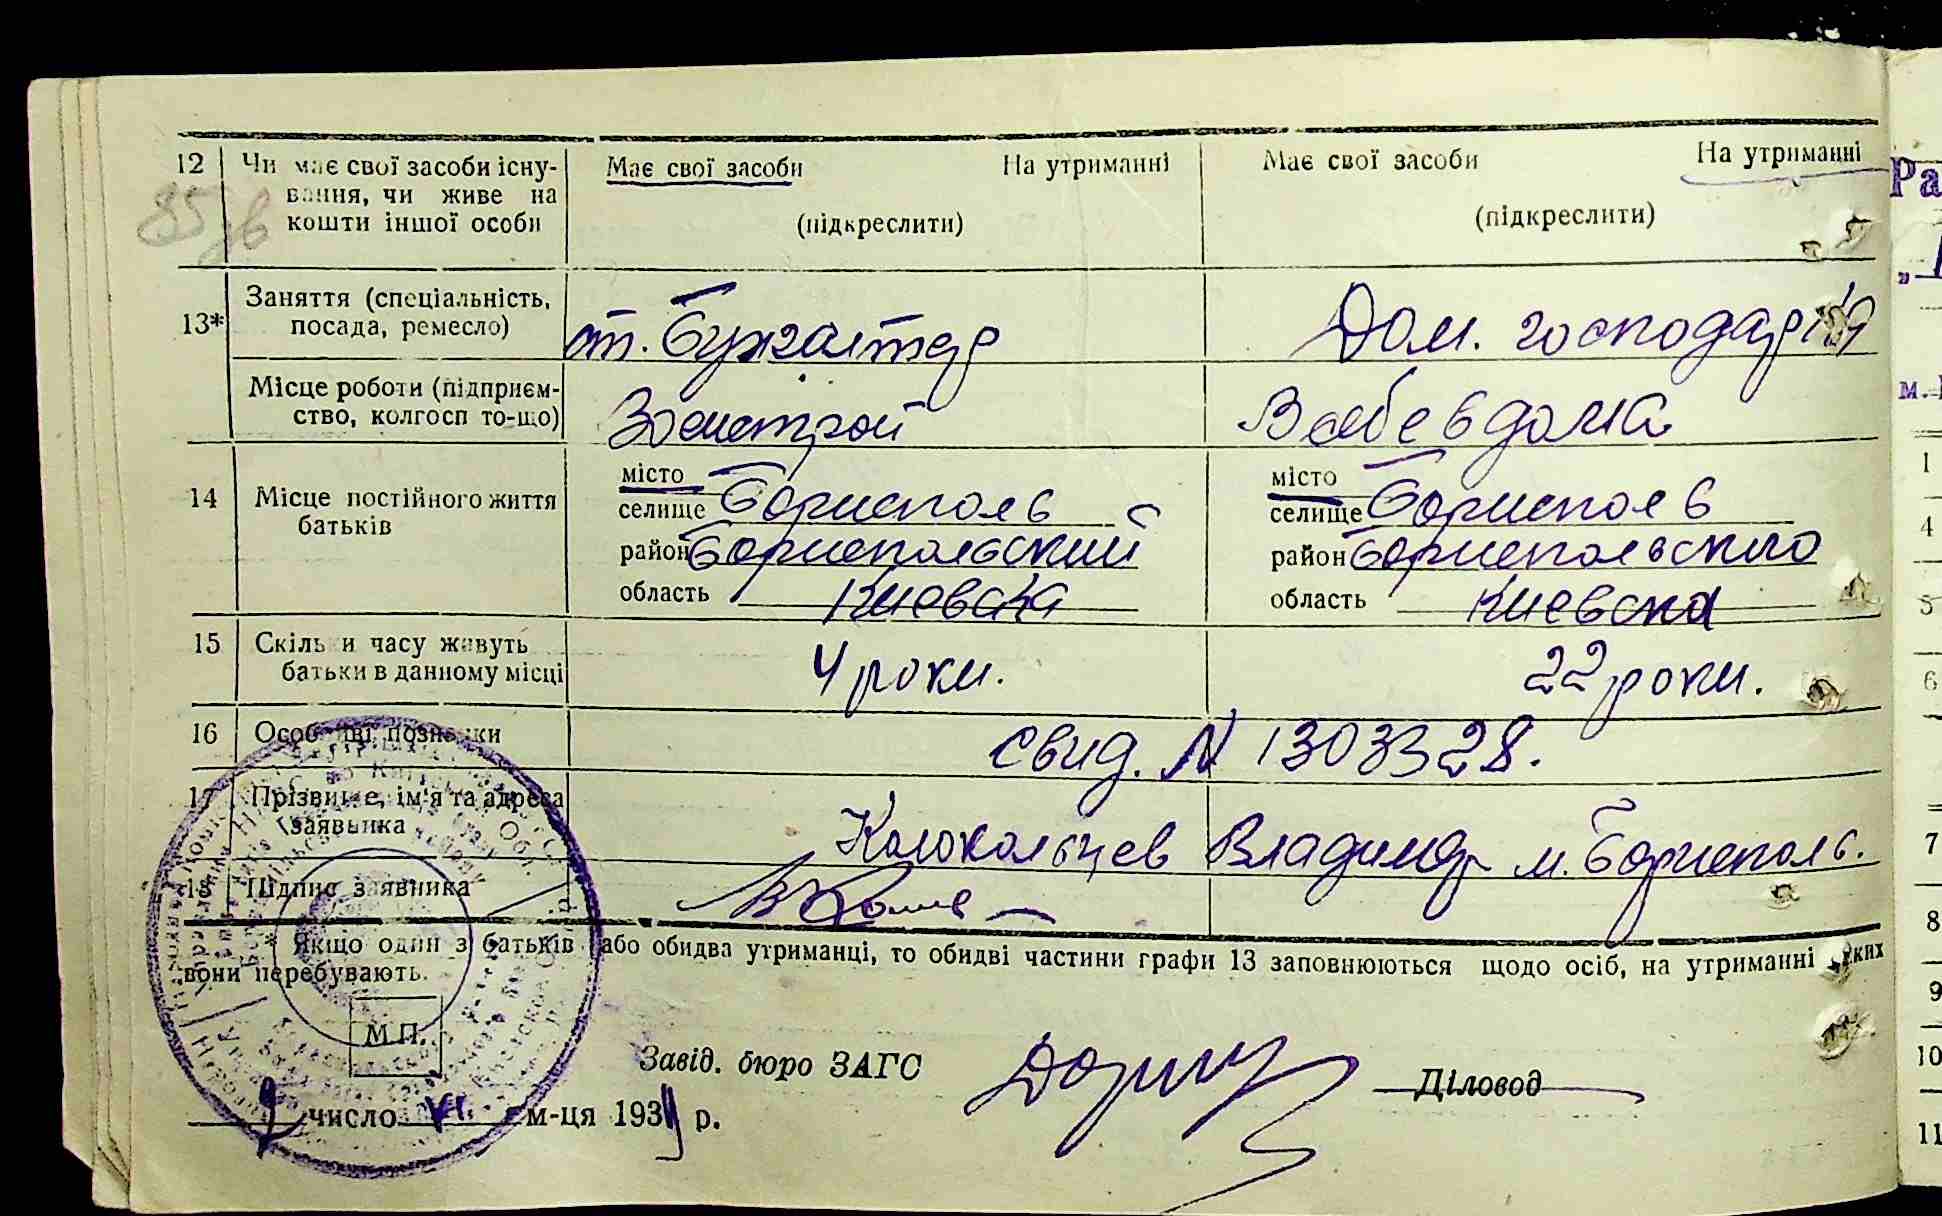 12 Чи має свої засоби існу- Має свої засоби На утриманні Має свої засоби На утриманні
вання, чи живе на
кошти іншої особи (підкреслити) (підкреслити)
Заняття (спеціальність,
13* посада, ремесло) ст. бухгалтер Дом. господарня
Місце роботи (підприєм-
ство, колгосп то-що) Зоенстрой В себе в дома
місто місто
14 Місце постійного життя селище Борисполь селище Борисполь
батьків район Бориспольский район Бориспольского
область Киевска область Киевска
15 Скільки часу живуть
батьки в данному місці 4 роки. 22 роки.
16 Особливі позначки свид. N 1303328.
17 Прізвище, ім'я та адреса
заявника Колокольцев Владимир м. Борисполь.
18 Підпис заявника
* Якщо один з батьків або обидва утриманці, то обидві частини графи 13 заповнюються щодо осіб, на утриманні яких
вони перебувають.
М.П.
Завід. бюро ЗАГС Діловод
число VI м-ця 193 р.
Ра
м.
1
4
5
6
7
8
9
10
11